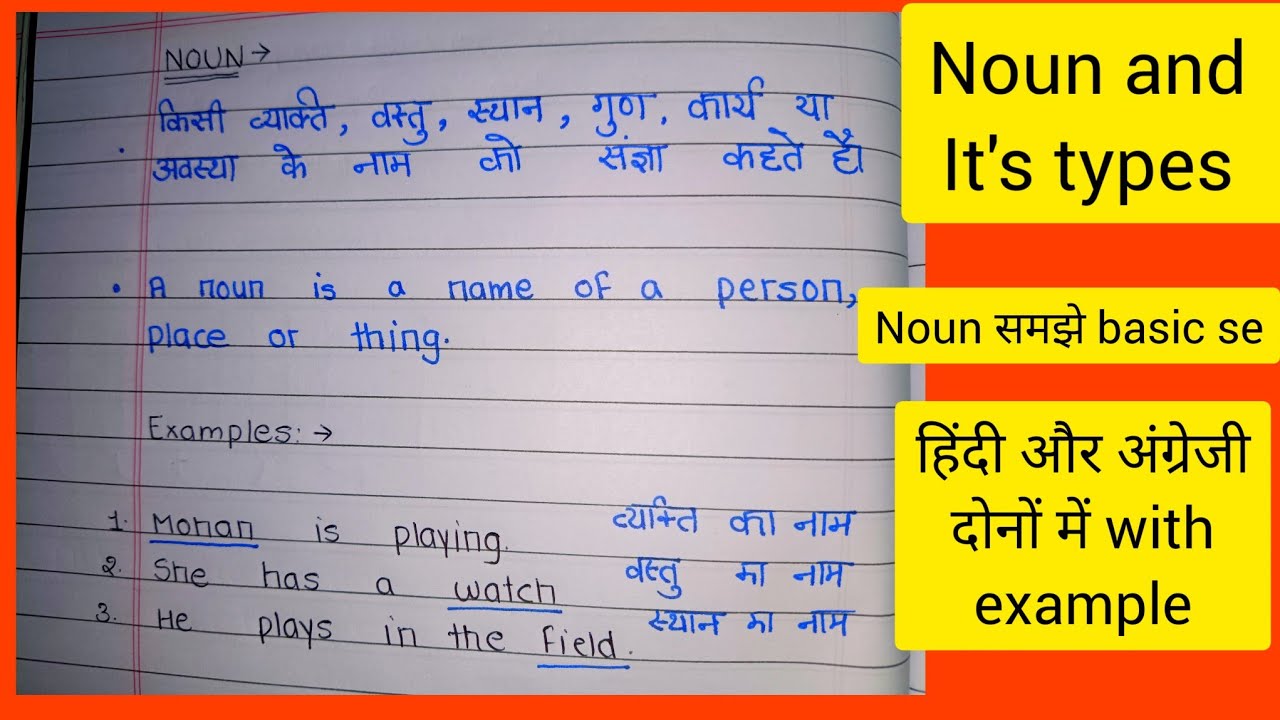 NOUN →
किसी व्यक्ति, वस्तु, स्थान, गुण, कार्य या
अवस्था के नाम को संज्ञा कहते है।
• A noun is a name of a person,
place or thing.
Examples: →
1. Mohan is playing. व्यक्ति का नाम
2. She has a watch वस्तु का नाम
3. He plays in the field. स्थान का नाम
Noun and
It's types
Noun समझे basic se
हिंदी और अंग्रेजी
दोनों में with
example